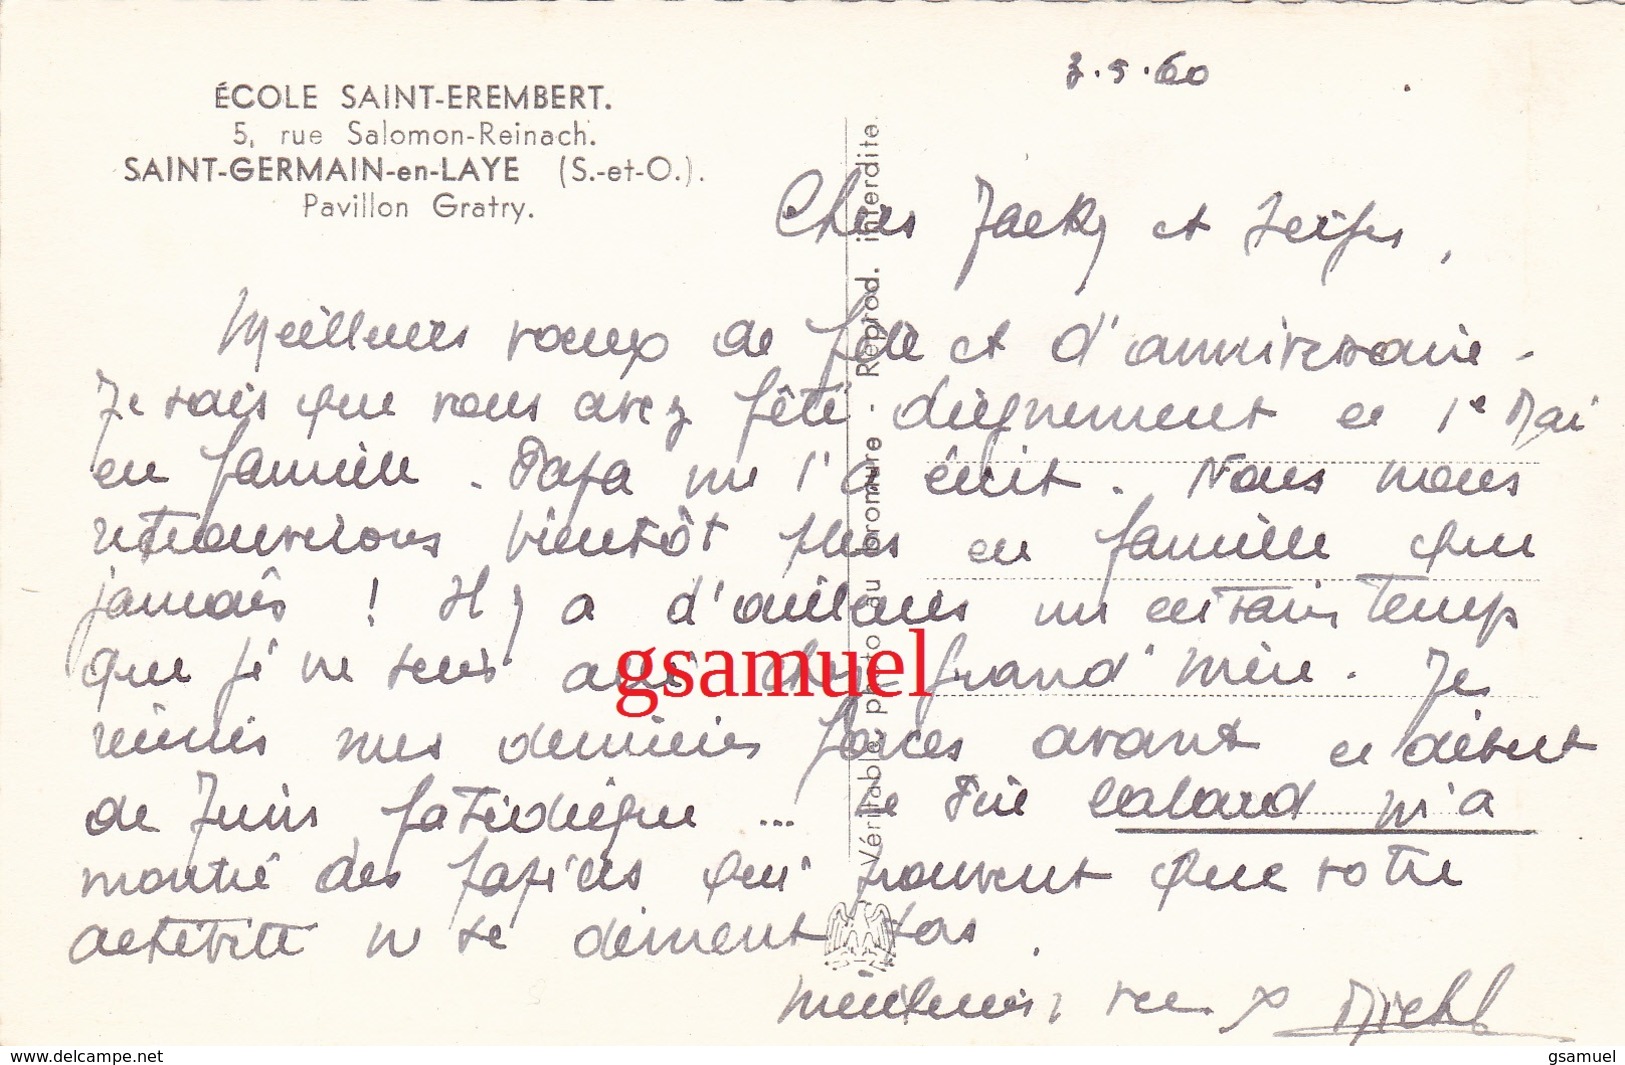 3.5.60
ÉCOLE SAINT-EREMBERT.
5, rue Salomon-Reinach.
SAINT-GERMAIN-en-LAYE (S.-et-O.).
Pavillon Gratry.
Chers Jacky et
Meilleurs voeux de fête et d'anniversaire -
Je sais que vous avez fêté dignement le 1e Mai
en famille. Papa me l'a écrit. Nous nous
retrouverons bientôt plus en famille que
jamais ! Il y a d'ailleurs un certain temps
que je ne suis allé chez grand'mère. Je
réunis mes dernières forces avant le début
de Juin fatidique ... le Père Calard m'a
montré des papiers qui prouvent que votre
activité ne se dément pas.
Meilleurs voeux Michel
Véritable photo au bromure - Reprod. interdite.
gsamuel
www.delcampe.net
gsamuel